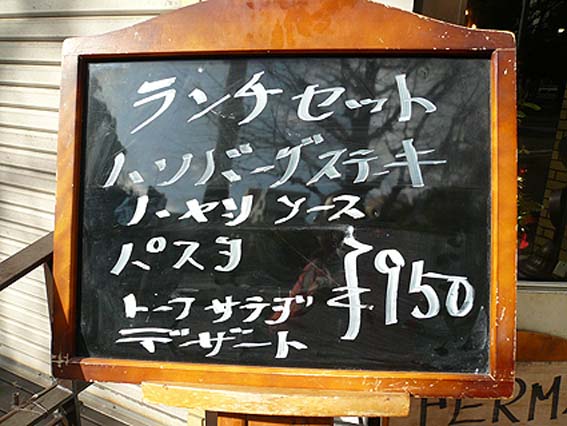 ランチセット
ハンバーグステーキ
ハヤシソース
パスタ
トーフサラダ
デザート
}¥950
FERMA